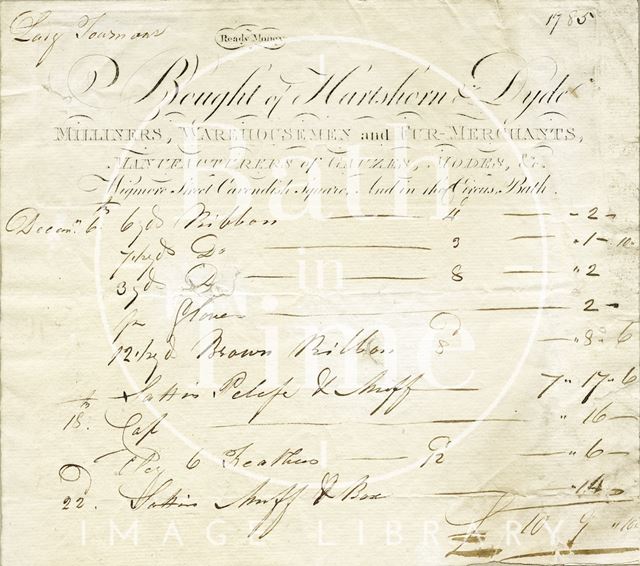 Lucy
Ready Money
1785
Bought of Hartshorn & Dyde
MILLINERS, WAREHOUSEMEN and FUR-MERCHANTS,
MANUFACTURERS of GAUZES, MODES, &c.
Wigmore Street Cavendish Square, And in the Circus, Bath.
6 yds Ribbon 4 - 2 -
yds Do 3 " 1 - 10
3 yds Do 8 " 2
pr Gloves 2 -
Brown Ribbon 8 " 8 " 6
Sattin Pelise & Muff 7 " 17 " 6
18. Cap " 16 -
6 Feathers " 6 -
22. Sattin Muff & Box " 14 -
10 9 " 10
Bath
in
Time
IMAGE LIBRARY